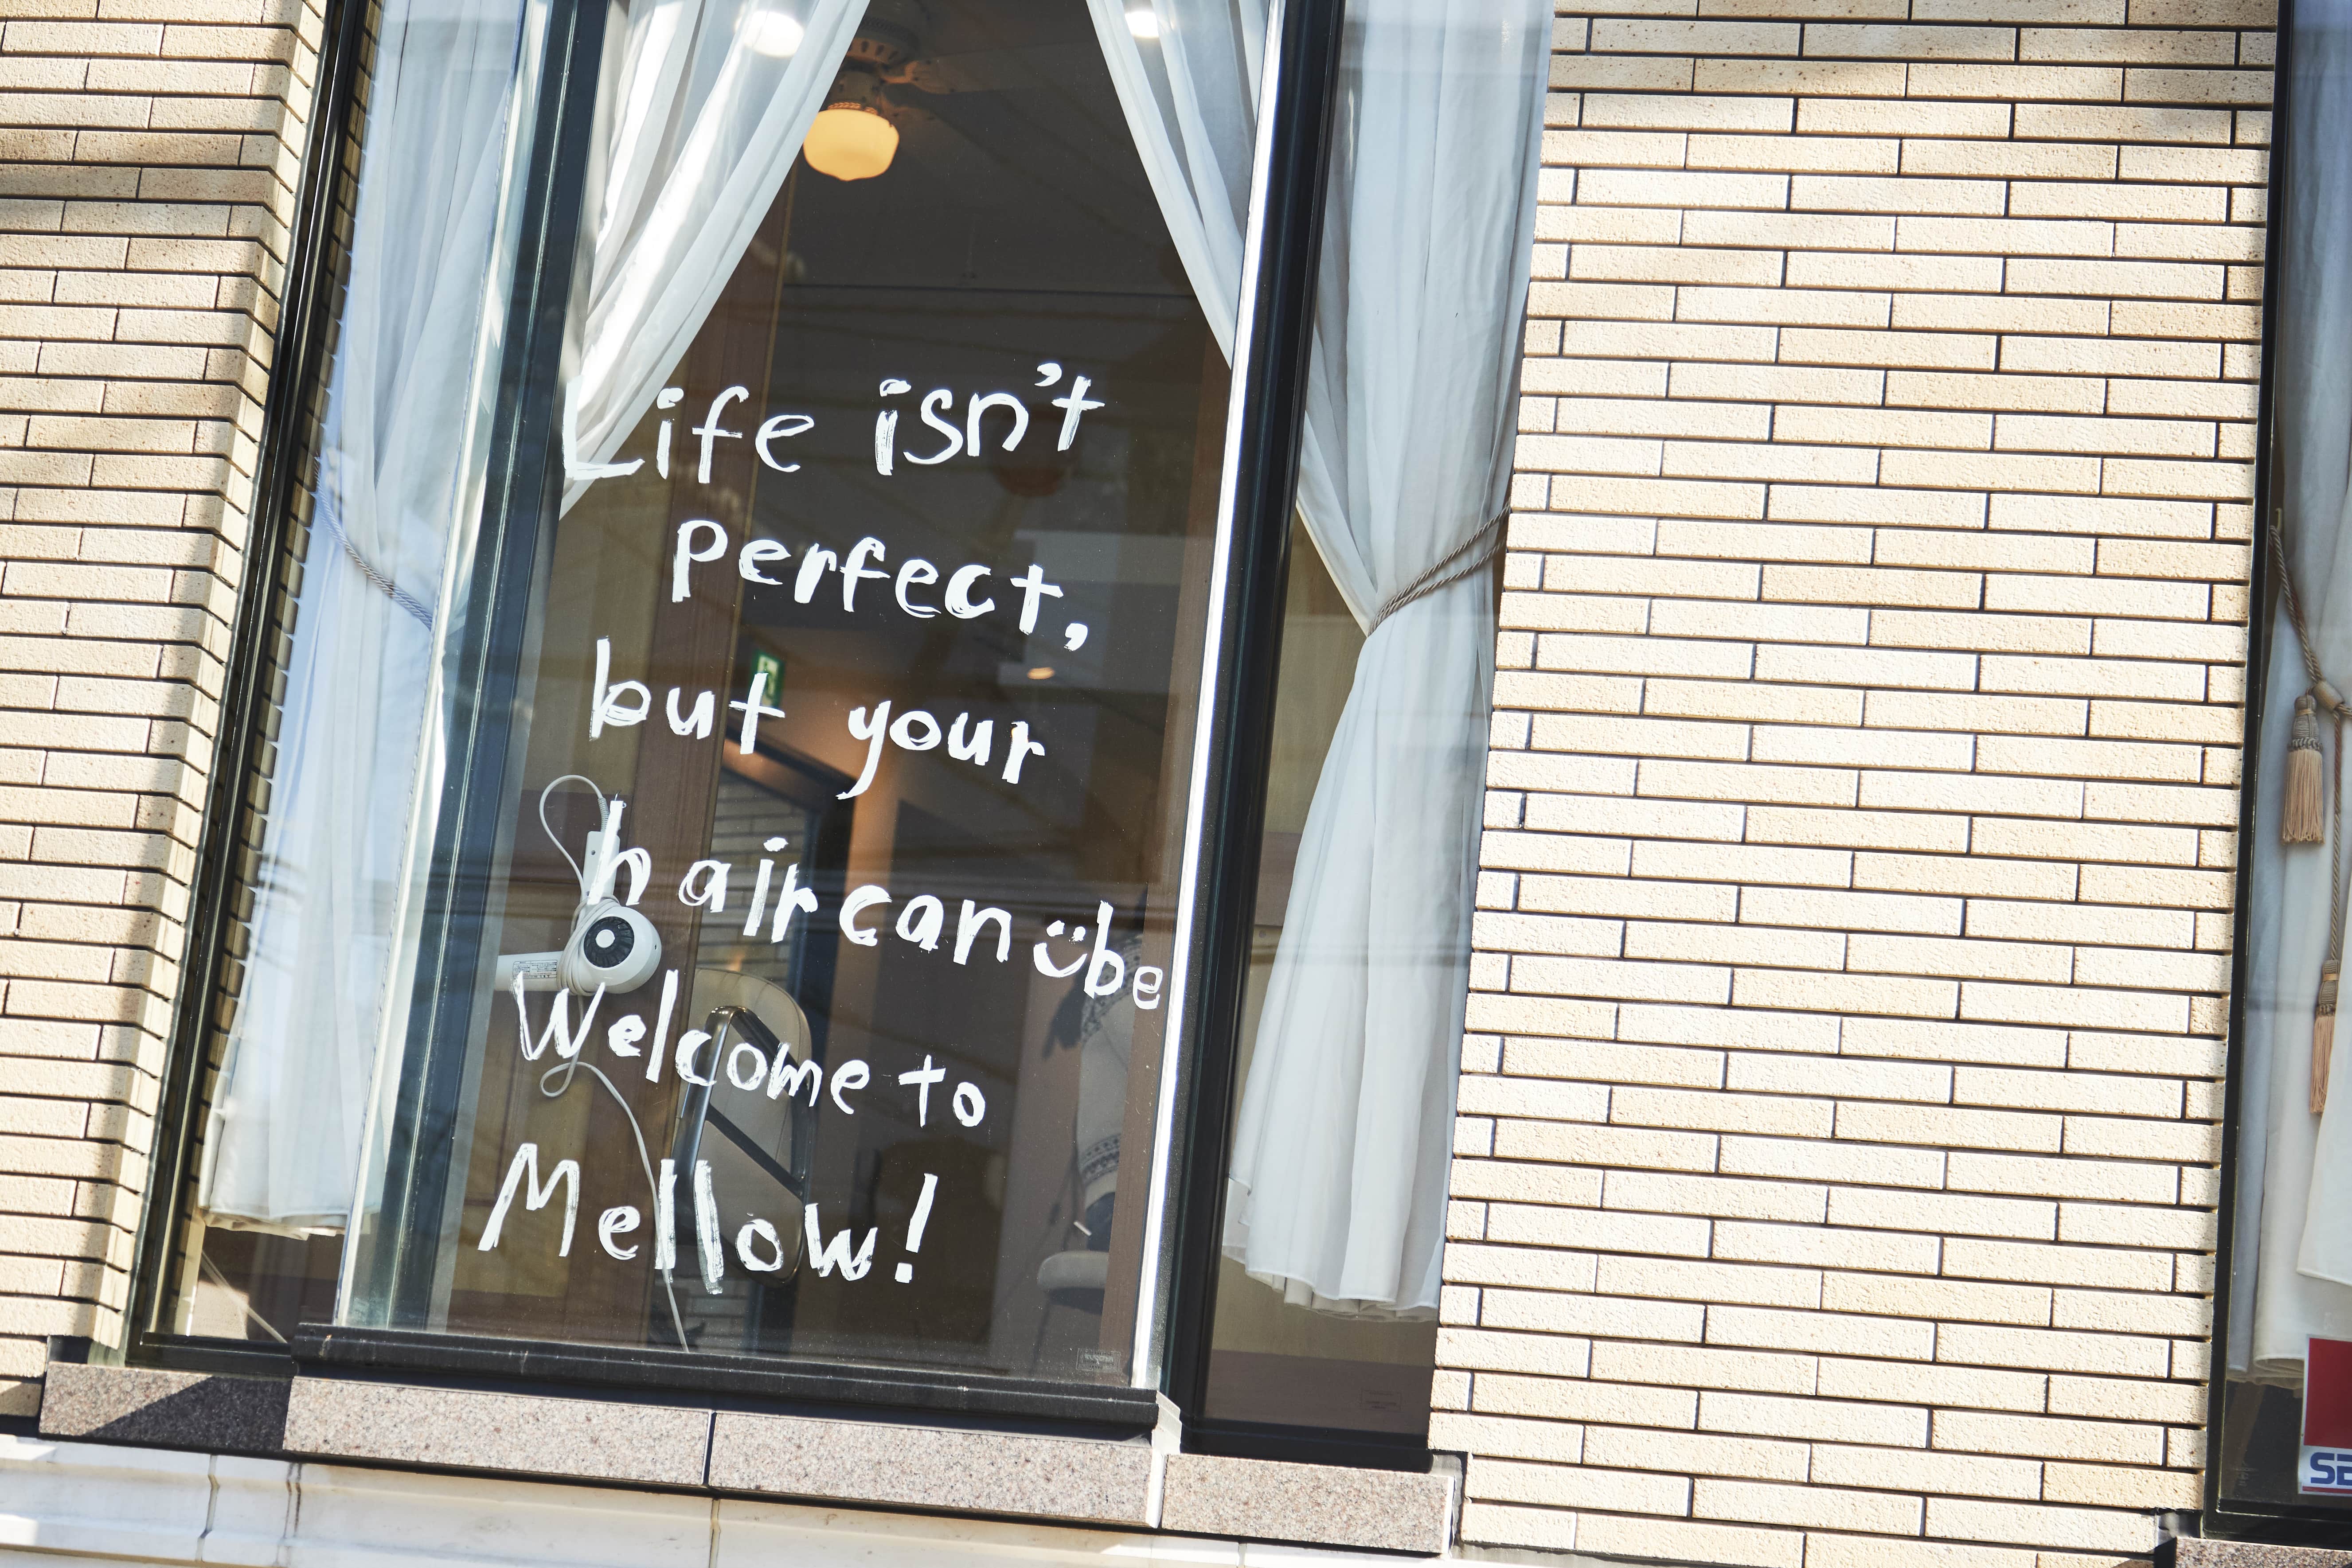 Life isn't
Perfect,
but your
hair can be
Welcome to
Mellow!